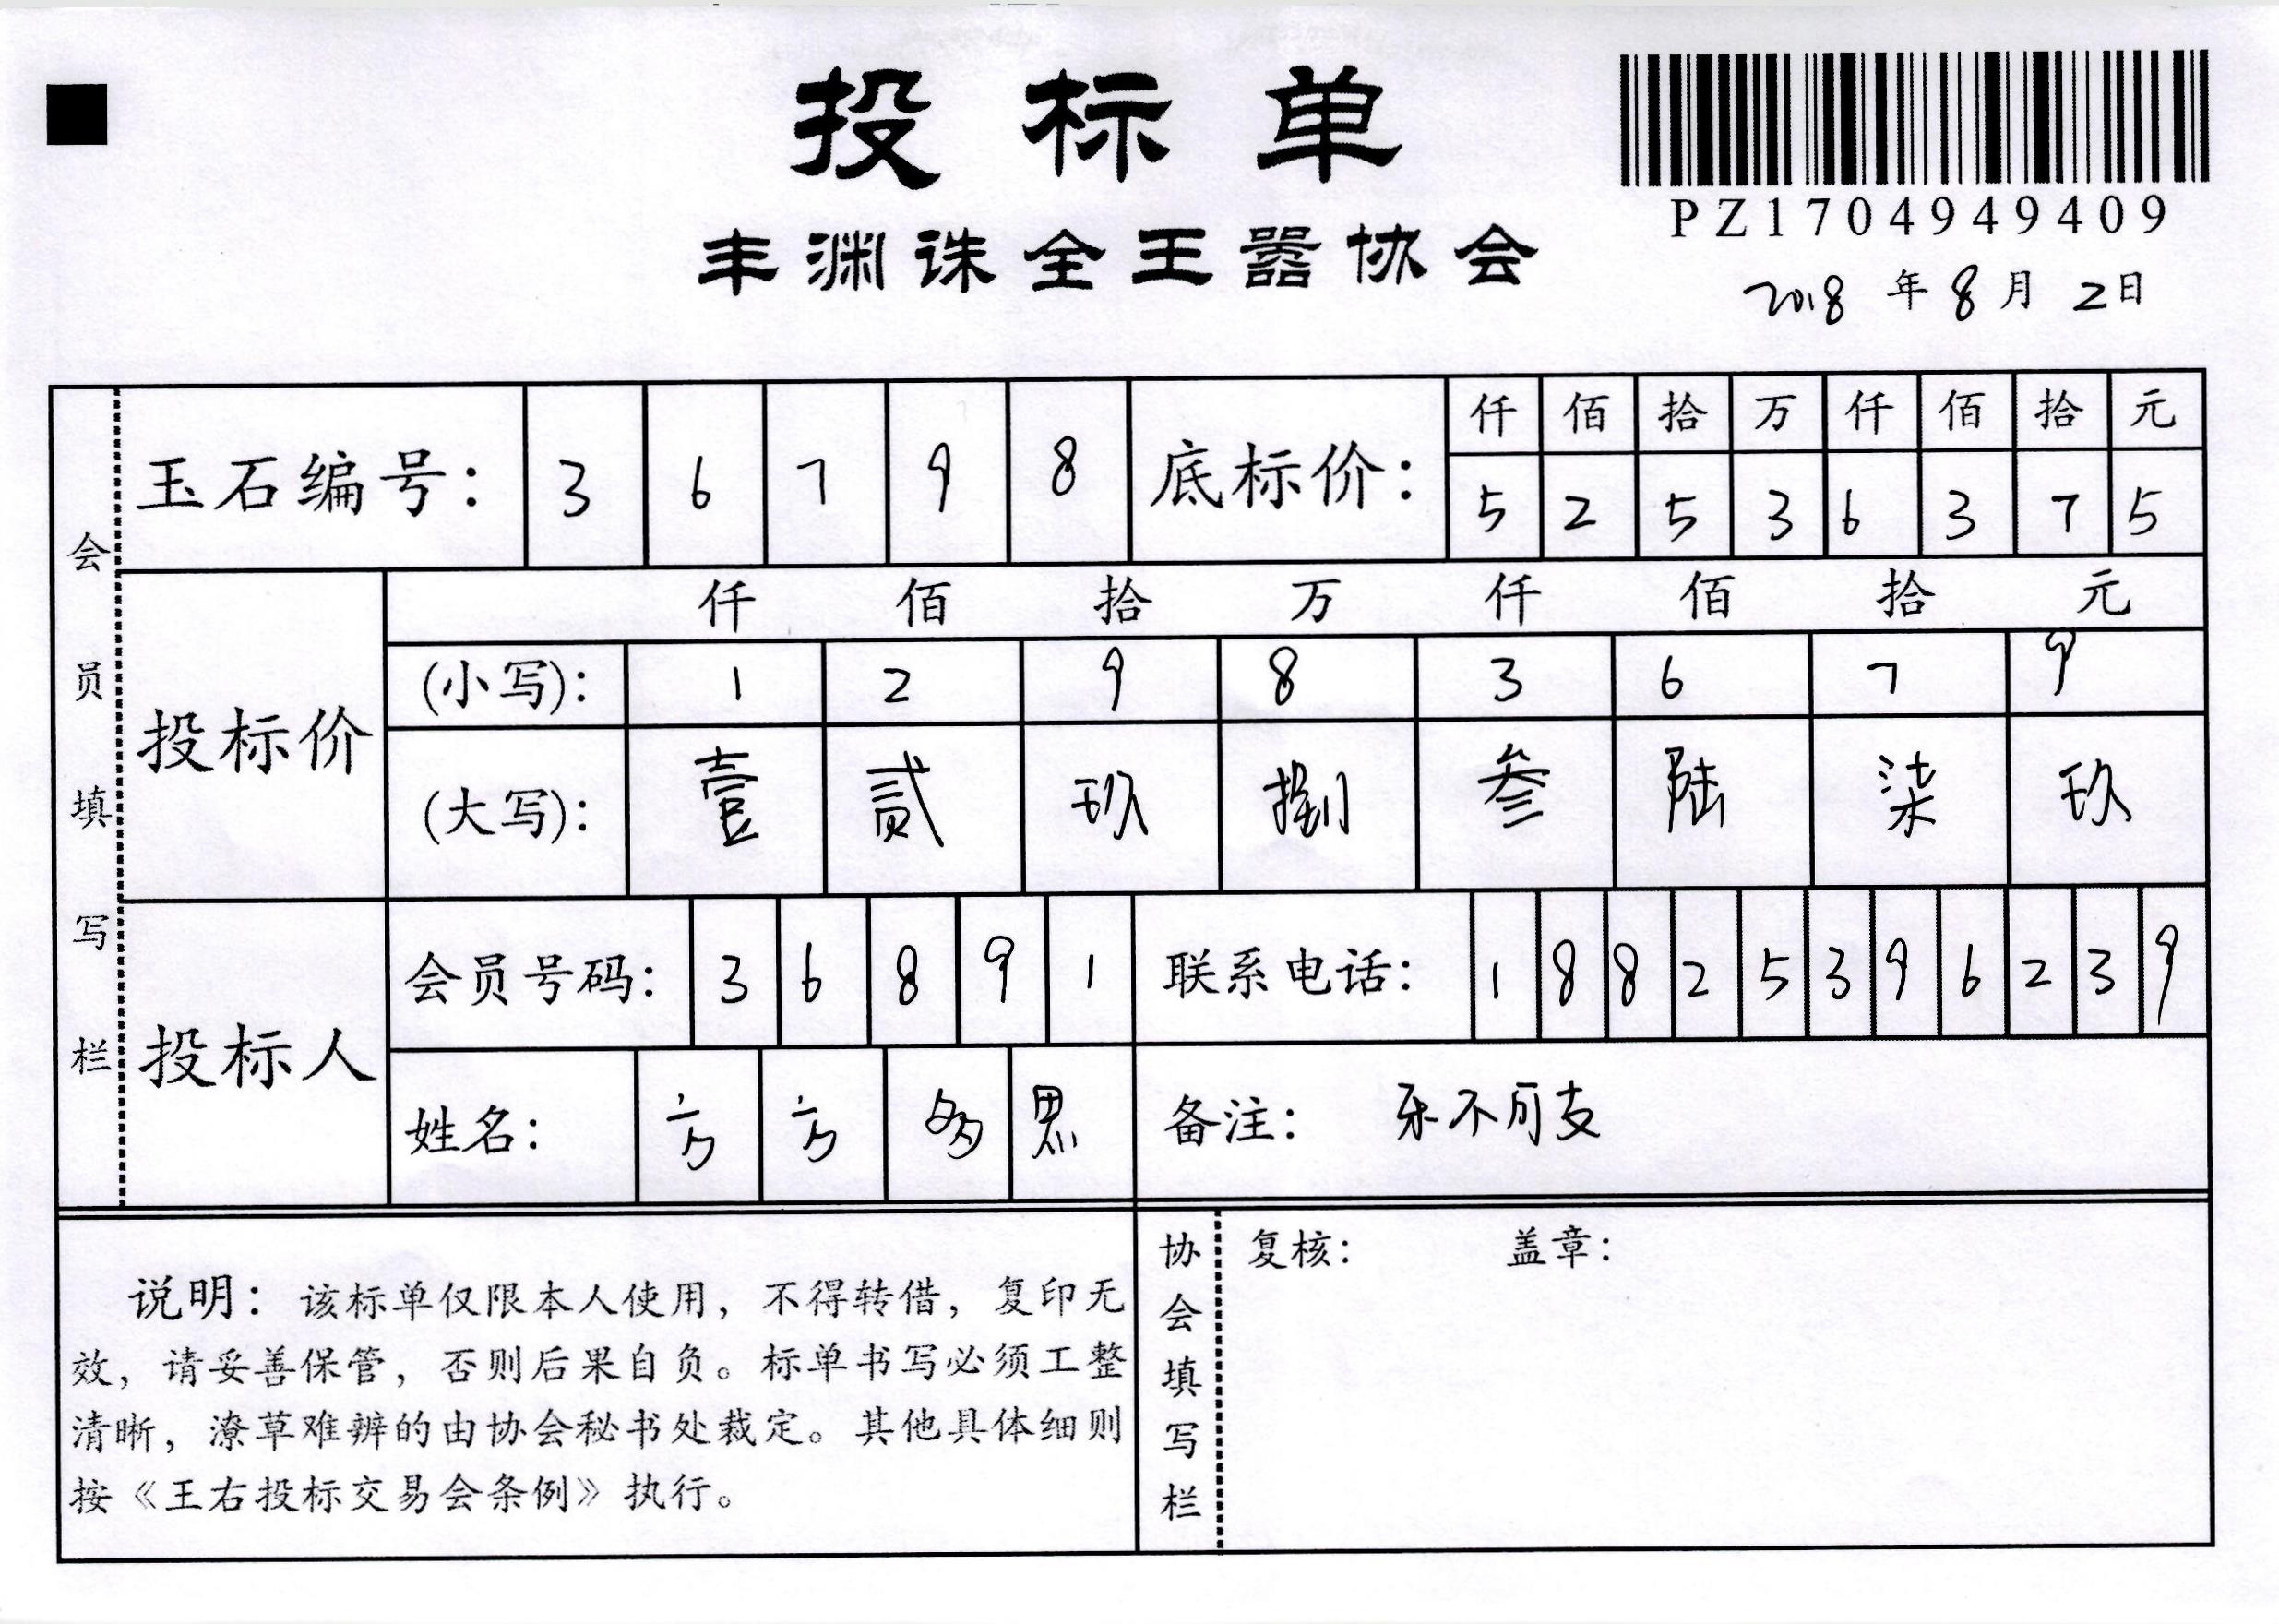 投标单
PZ1704949409
丰渊诛全王嚣协会
2018年8月2日
会员填写栏
玉石编号: 3 6 7 9 8
底标价: 仟 佰 拾 万 仟 佰 拾 元
5 2 5 3 6 3 7 5
投标价
仟 佰 拾 万 仟 佰 拾 元
(小写): 1 2 9 8 3 6 7 9
(大写): 壹 贰 玖 捌 叁 陆 柒 玖
投标人
会员号码: 3 6 8 9 1
联系电话: 1 8 8 2 5 3 9 6 2 3 9
姓名: 方 方 多 思
备注: 乐不可支
说明:该标单仅限本人使用,不得转借,复印无
效,请妥善保管,否则后果自负。标单书写必须工整
清晰,潦草难辨的由协会秘书处裁定。其他具体细则
按《王右投标交易会条例》执行。
协会填写栏
复核: 盖章: